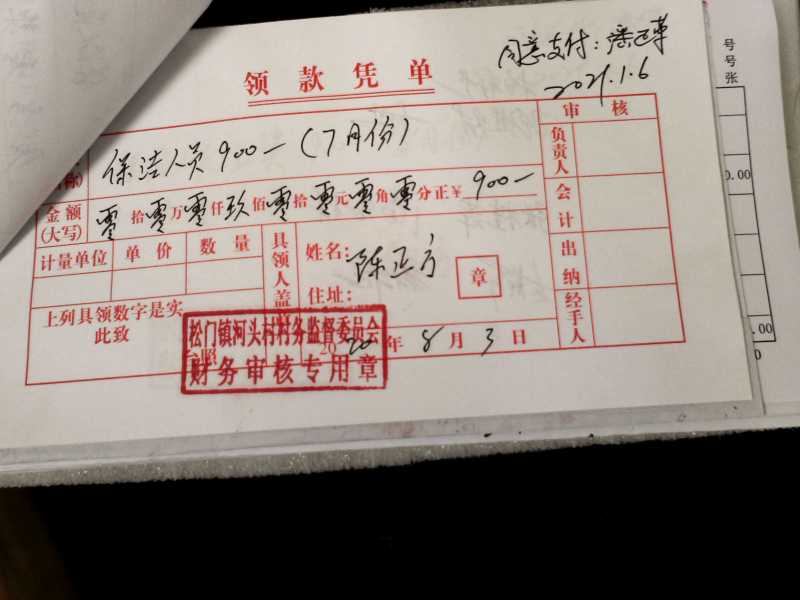 同意支付：潘
2021.1.6
领款凭单
保洁人员 900一（7月份）
金额(大写) 零拾零万零仟玖佰零拾零元零角零分正¥ 900一
计量单位 单价 数量
具领人盖章
姓名：陈正方
章
住址：
上列具领数字是实
此致
台照
2020年8月3日
松门镇河头村村务监督委员会
财务审核专用章
审核
负责人
会计
出纳
经手人
号
号
张
0.00
.00